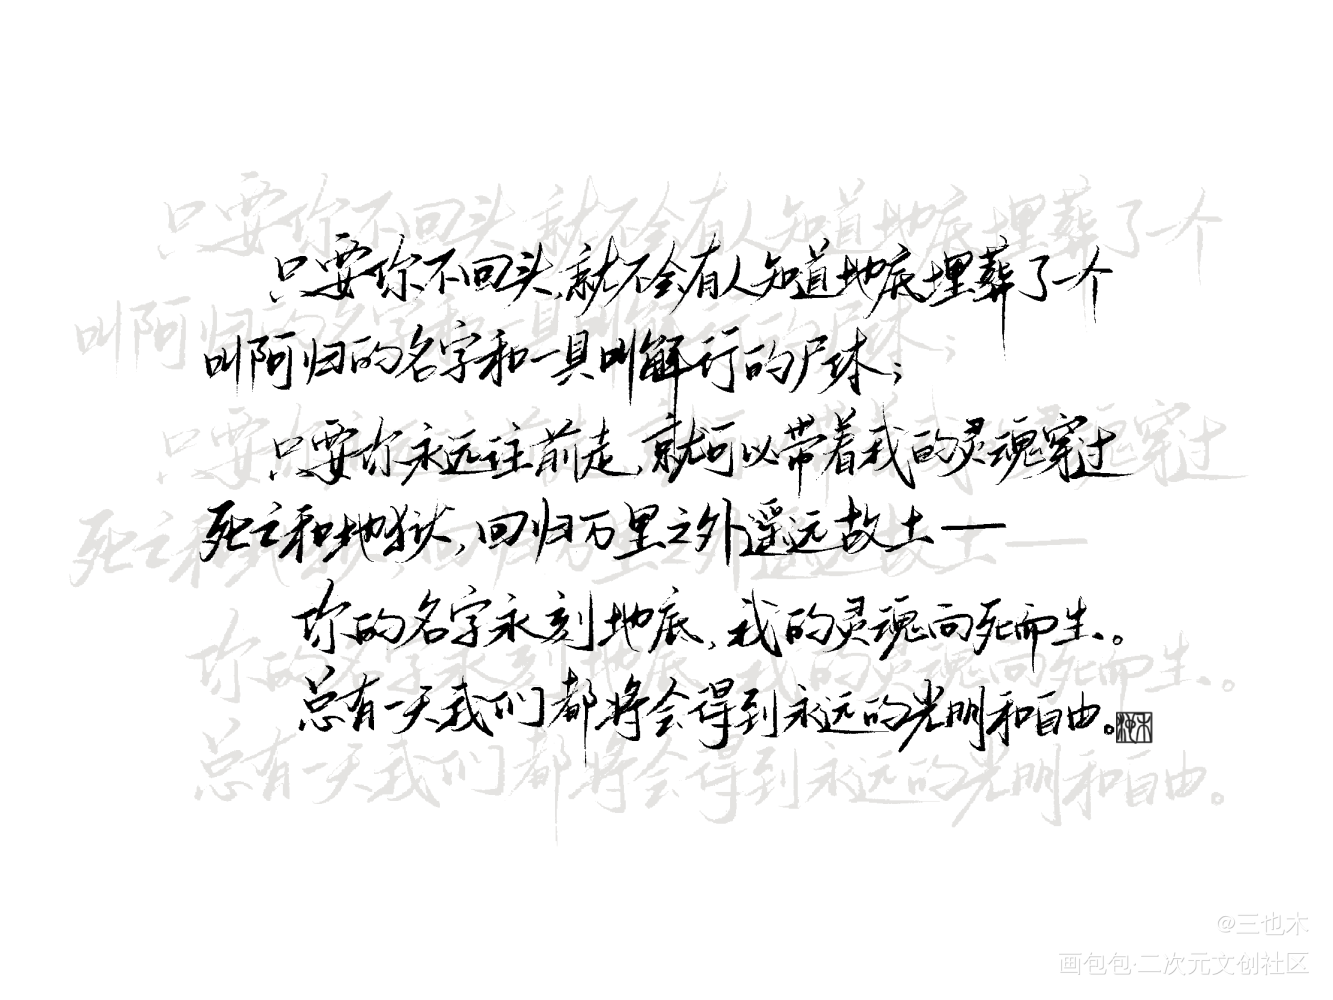 只要你不回头,就不会有人知道地底埋葬了一个
叫阿归的名字和一具叫解行的尸体;
只要你永远往前走,就可以带着我的灵魂穿过
死亡和地狱,回归万里之外遥远故土——
你的名字永刻地底,我的灵魂向死而生。
总有一天我们都将会得到永远的光明和自由。
@三也木
画包包·二次元文创社区